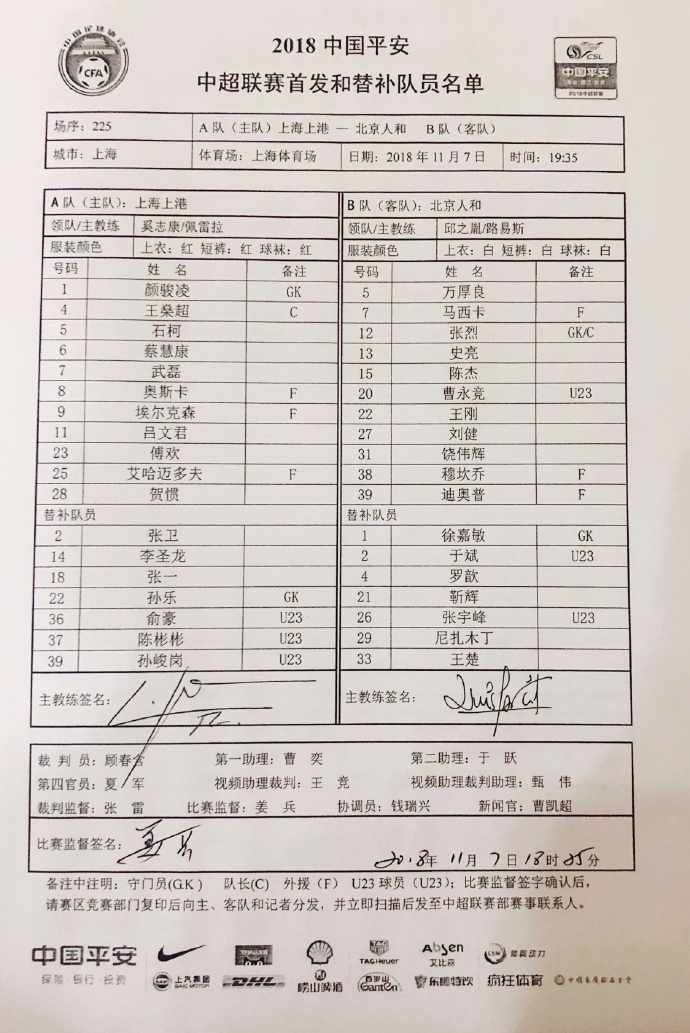 中国足球协会
CFA
2018 中国平安
中超联赛首发和替补队员名单
CSL
中国平安
2018中超联赛
场序：225 A 队（主队）上海上港 — 北京人和 B 队（客队）
城市：上海 体育场：上海体育场 日期：2018 年 11 月 7 日 时间：19:35
A 队（主队）：上海上港 B 队（客队）：北京人和
领队/主教练 奚志康/佩雷拉 领队/主教练 邱之胤/路易斯
服装颜色 上衣：红 短裤：红 球袜：红 服装颜色 上衣：白 短裤：白 球袜：白
号码 姓 名 备注 号码 姓 名 备注
1 颜骏凌 GK 5 万厚良
4 王燊超 C 7 马西卡 F
5 石柯 12 张烈 GK/C
6 蔡慧康 13 史亮
7 武磊 15 陈杰
8 奥斯卡 F 20 曹永竞 U23
9 埃尔克森 F 22 王刚
11 吕文君 27 刘健
23 傅欢 31 饶伟辉
25 艾哈迈多夫 F 38 穆坎乔 F
28 贺惯 39 迪奥普 F
替补队员 替补队员
2 张卫 1 徐嘉敏 GK
14 李圣龙 2 于斌 U23
18 张一 4 罗歆
22 孙乐 GK 21 靳辉
36 俞豪 U23 26 张宇峰 U23
37 陈彬彬 U23 29 尼扎木丁
39 孙峻岗 U23 33 王楚
主教练签名： 主教练签名：
裁 判 员：顾春含 第一助理：曹 奕 第二助理：于 跃
第四官员：夏 军 视频助理裁判：王 竞 视频助理裁判助理：甄 伟
裁判监督：张 雷 比赛监督：姜 兵 协调员：钱瑞兴 新闻官：曹凯超
比赛监督签名：姜兵
2018年 11月 7日 18时 25分
备注中注明：守门员(GK ) 队长(C) 外援（F） U23 球员（U23）；比赛监督签字确认后，
请赛区竞赛部门复印后向主、客队和记者分发，并立即扫描后发至中超联赛部赛事联系人。
中国平安 TAGHeuer Absen 艾比森 体奥动力
保险·银行·投资 上汽集团 SAIC MOTOR DHL 崂山啤酒 百岁山 Ganten 东鹏特饮 疯狂体育